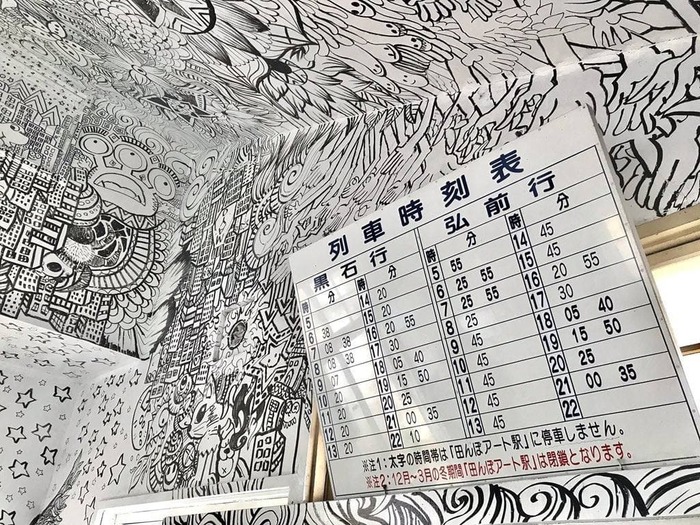 列車時刻表
黒石行 弘前行
時 分 時 分 時 分 時 分
5 14 20 5 55 14 45
6 38 15 20 6 25 55 15 45
7 08 38 16 20 55 7 25 55 16 20 55
8 08 38 17 30 8 25 17 30
9 07 18 05 40 9 45 18 05 40
10 20 19 15 50 10 45 19 15 50
11 20 20 25 11 45 20 25
12 20 21 00 35 12 45 21 00 35
13 20 22 10 13 45 22
※注1:太字の時間帯は「田んぼアート駅」に停車しません。
※注2:12月～3月の冬期間「田んぼアート駅」は閉鎖となります。